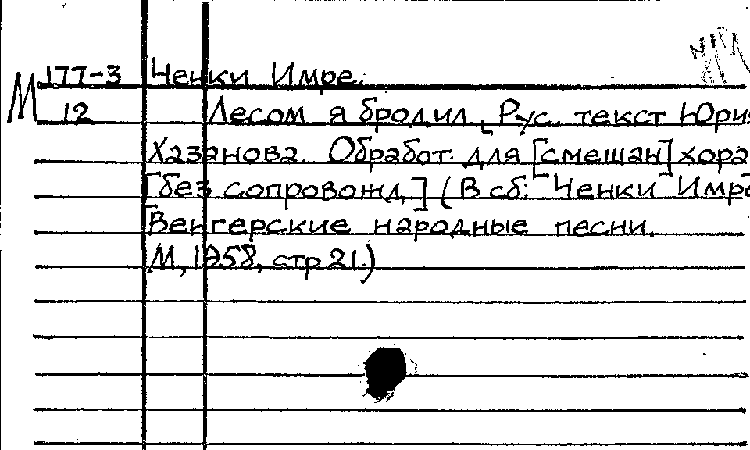 М 177-3 Ченки Имре.
12 Лесом я бродил, Рус. текст Юрия
Хазанова. Обработ. для [смешан] хора
[без сопровожд.] (В сб: Ченки Имре
Венгерские народные песни.
М, 1958, стр 21.)